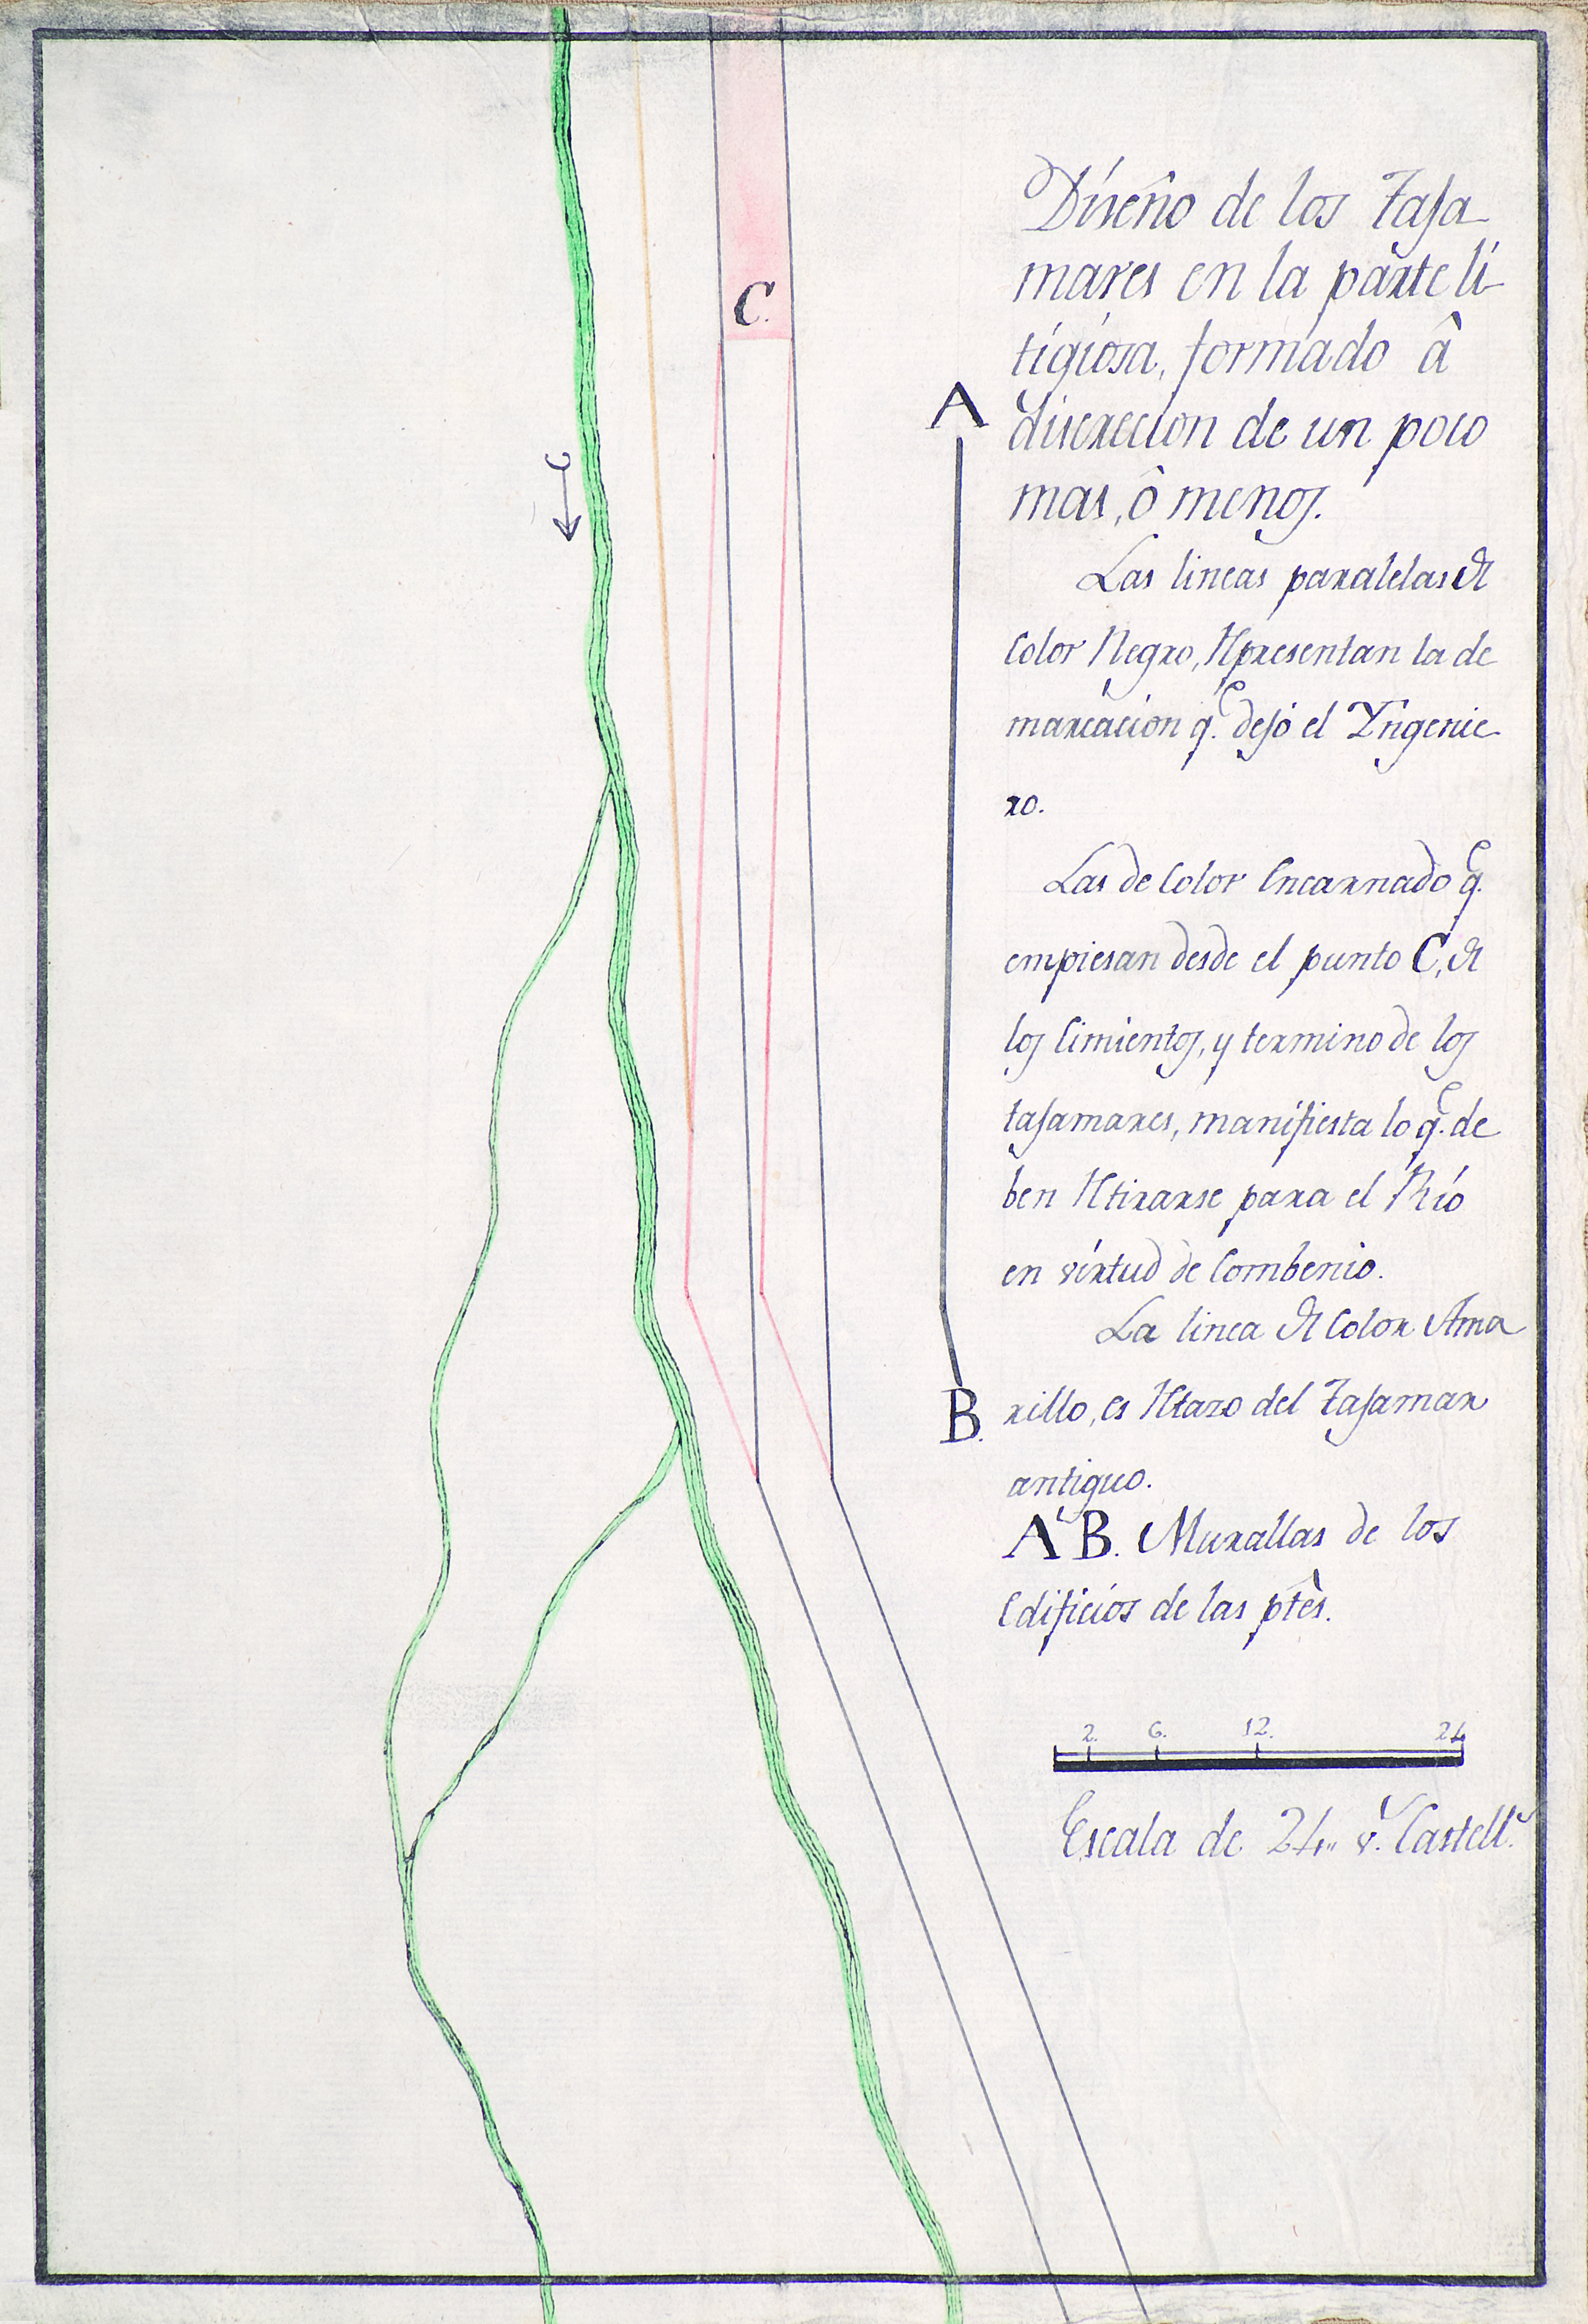 Diseño de los Taja
mares en la parte li-
tigiosa, formado â
discrecion de un poco
mas, ô menos.
Las lineas paralelas de
Color Negro, Representan la de
marcacion q.e dejó el Yngenie
ro.
Las de Color Encarnado q.e
empiesan desde el punto C, de
los Cimientos, y termino de los
tajamares, manifiesta lo q.e de
ben Retirarse para el Rio
en virtud de Combenio.
La linea de Color Ama
rillo, es Retazo del Tajamar
antiguo.
A B. Murallas de los
Edificios de las ptês.
2. 6. 12. 24
Escala de 24,, v.s Castell.s
C.
A
B.